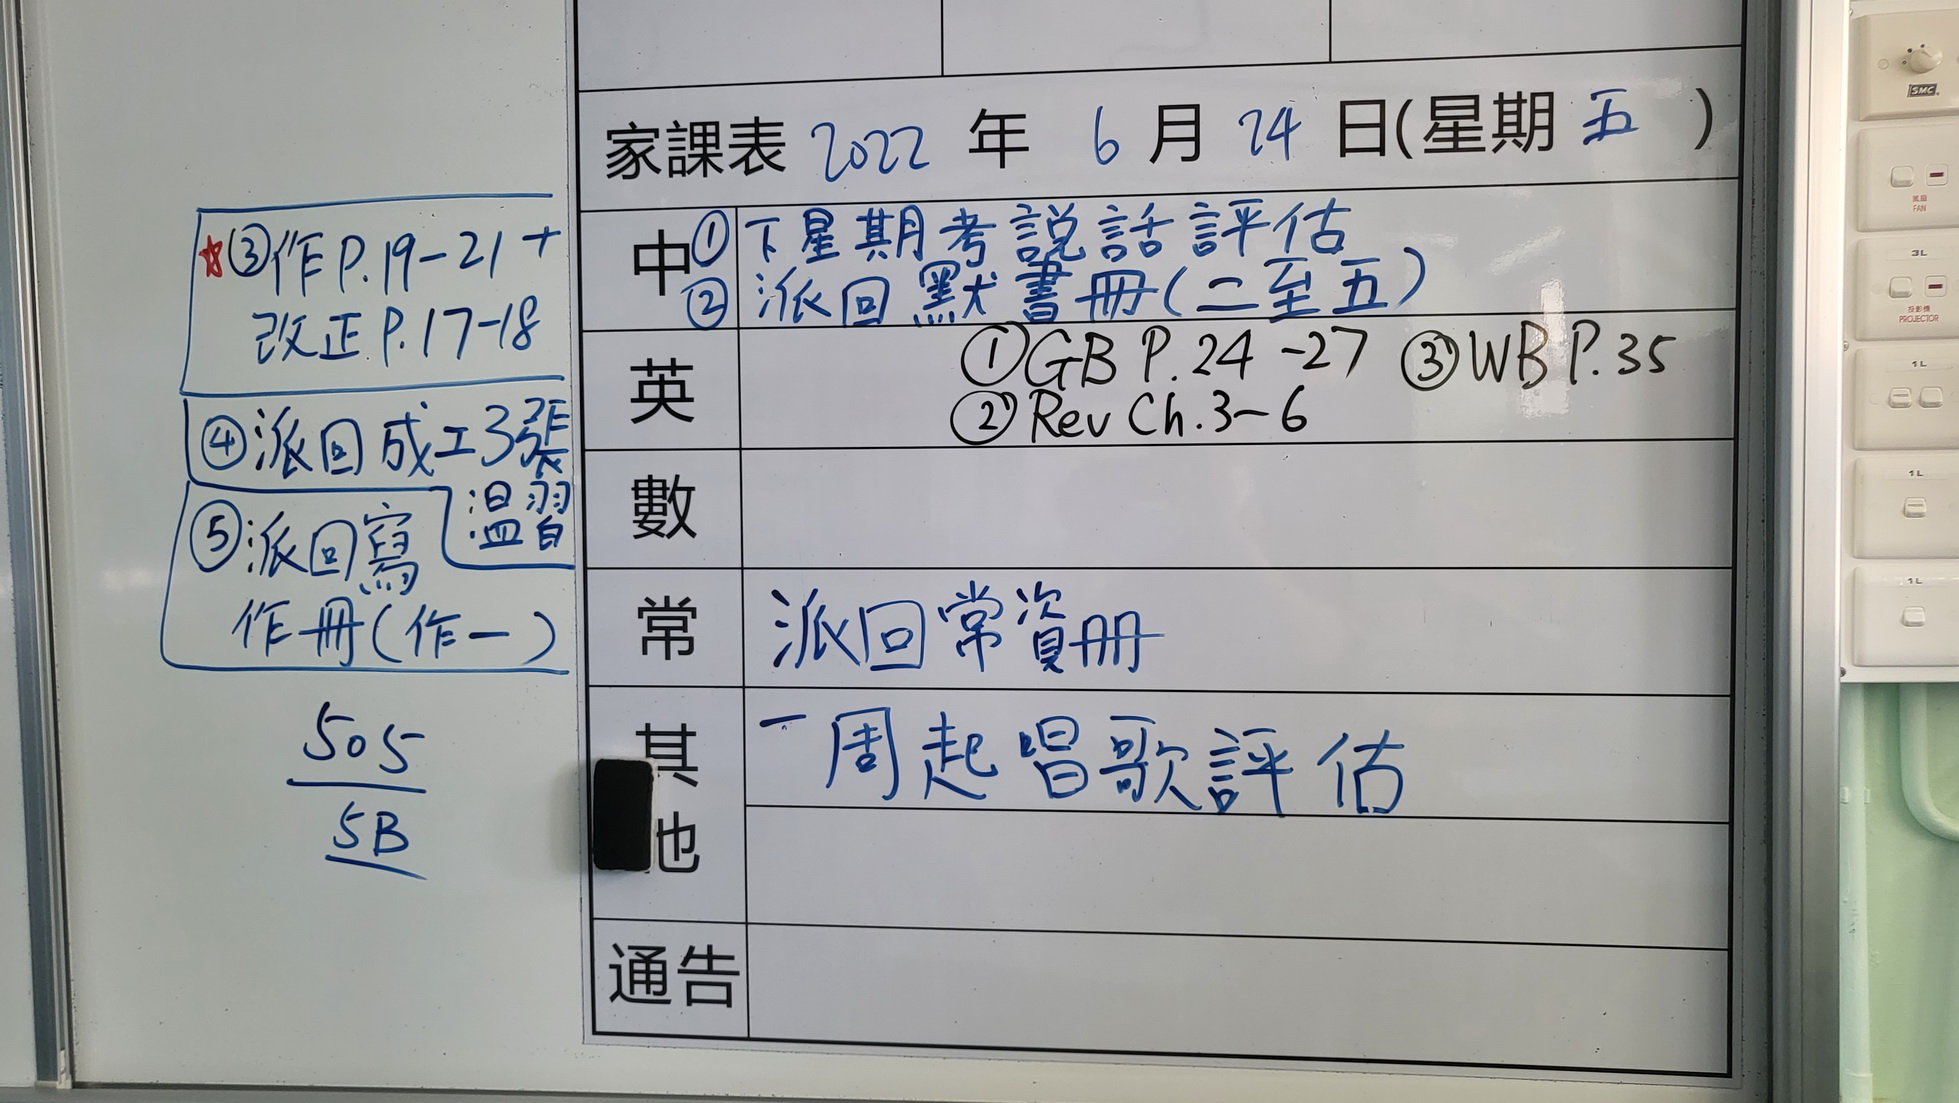 家課表 2022 年 6 月 24 日(星期 五 )
中 ① 下星期考說話評估
② 派回默書冊(二至五)
★③作P.19-21+
改正P.17-18
④派回成工3張
溫習
⑤派回寫
作冊(作一)
505
5B
英 ①GB P.24-27 ③WB P.35
②Rev Ch.3~6
數
常 派回常資冊
其他 一周起唱歌評估
通告
SMC
風扇
FAN
3L
投影機
PROJECTOR
1L
1L
1L